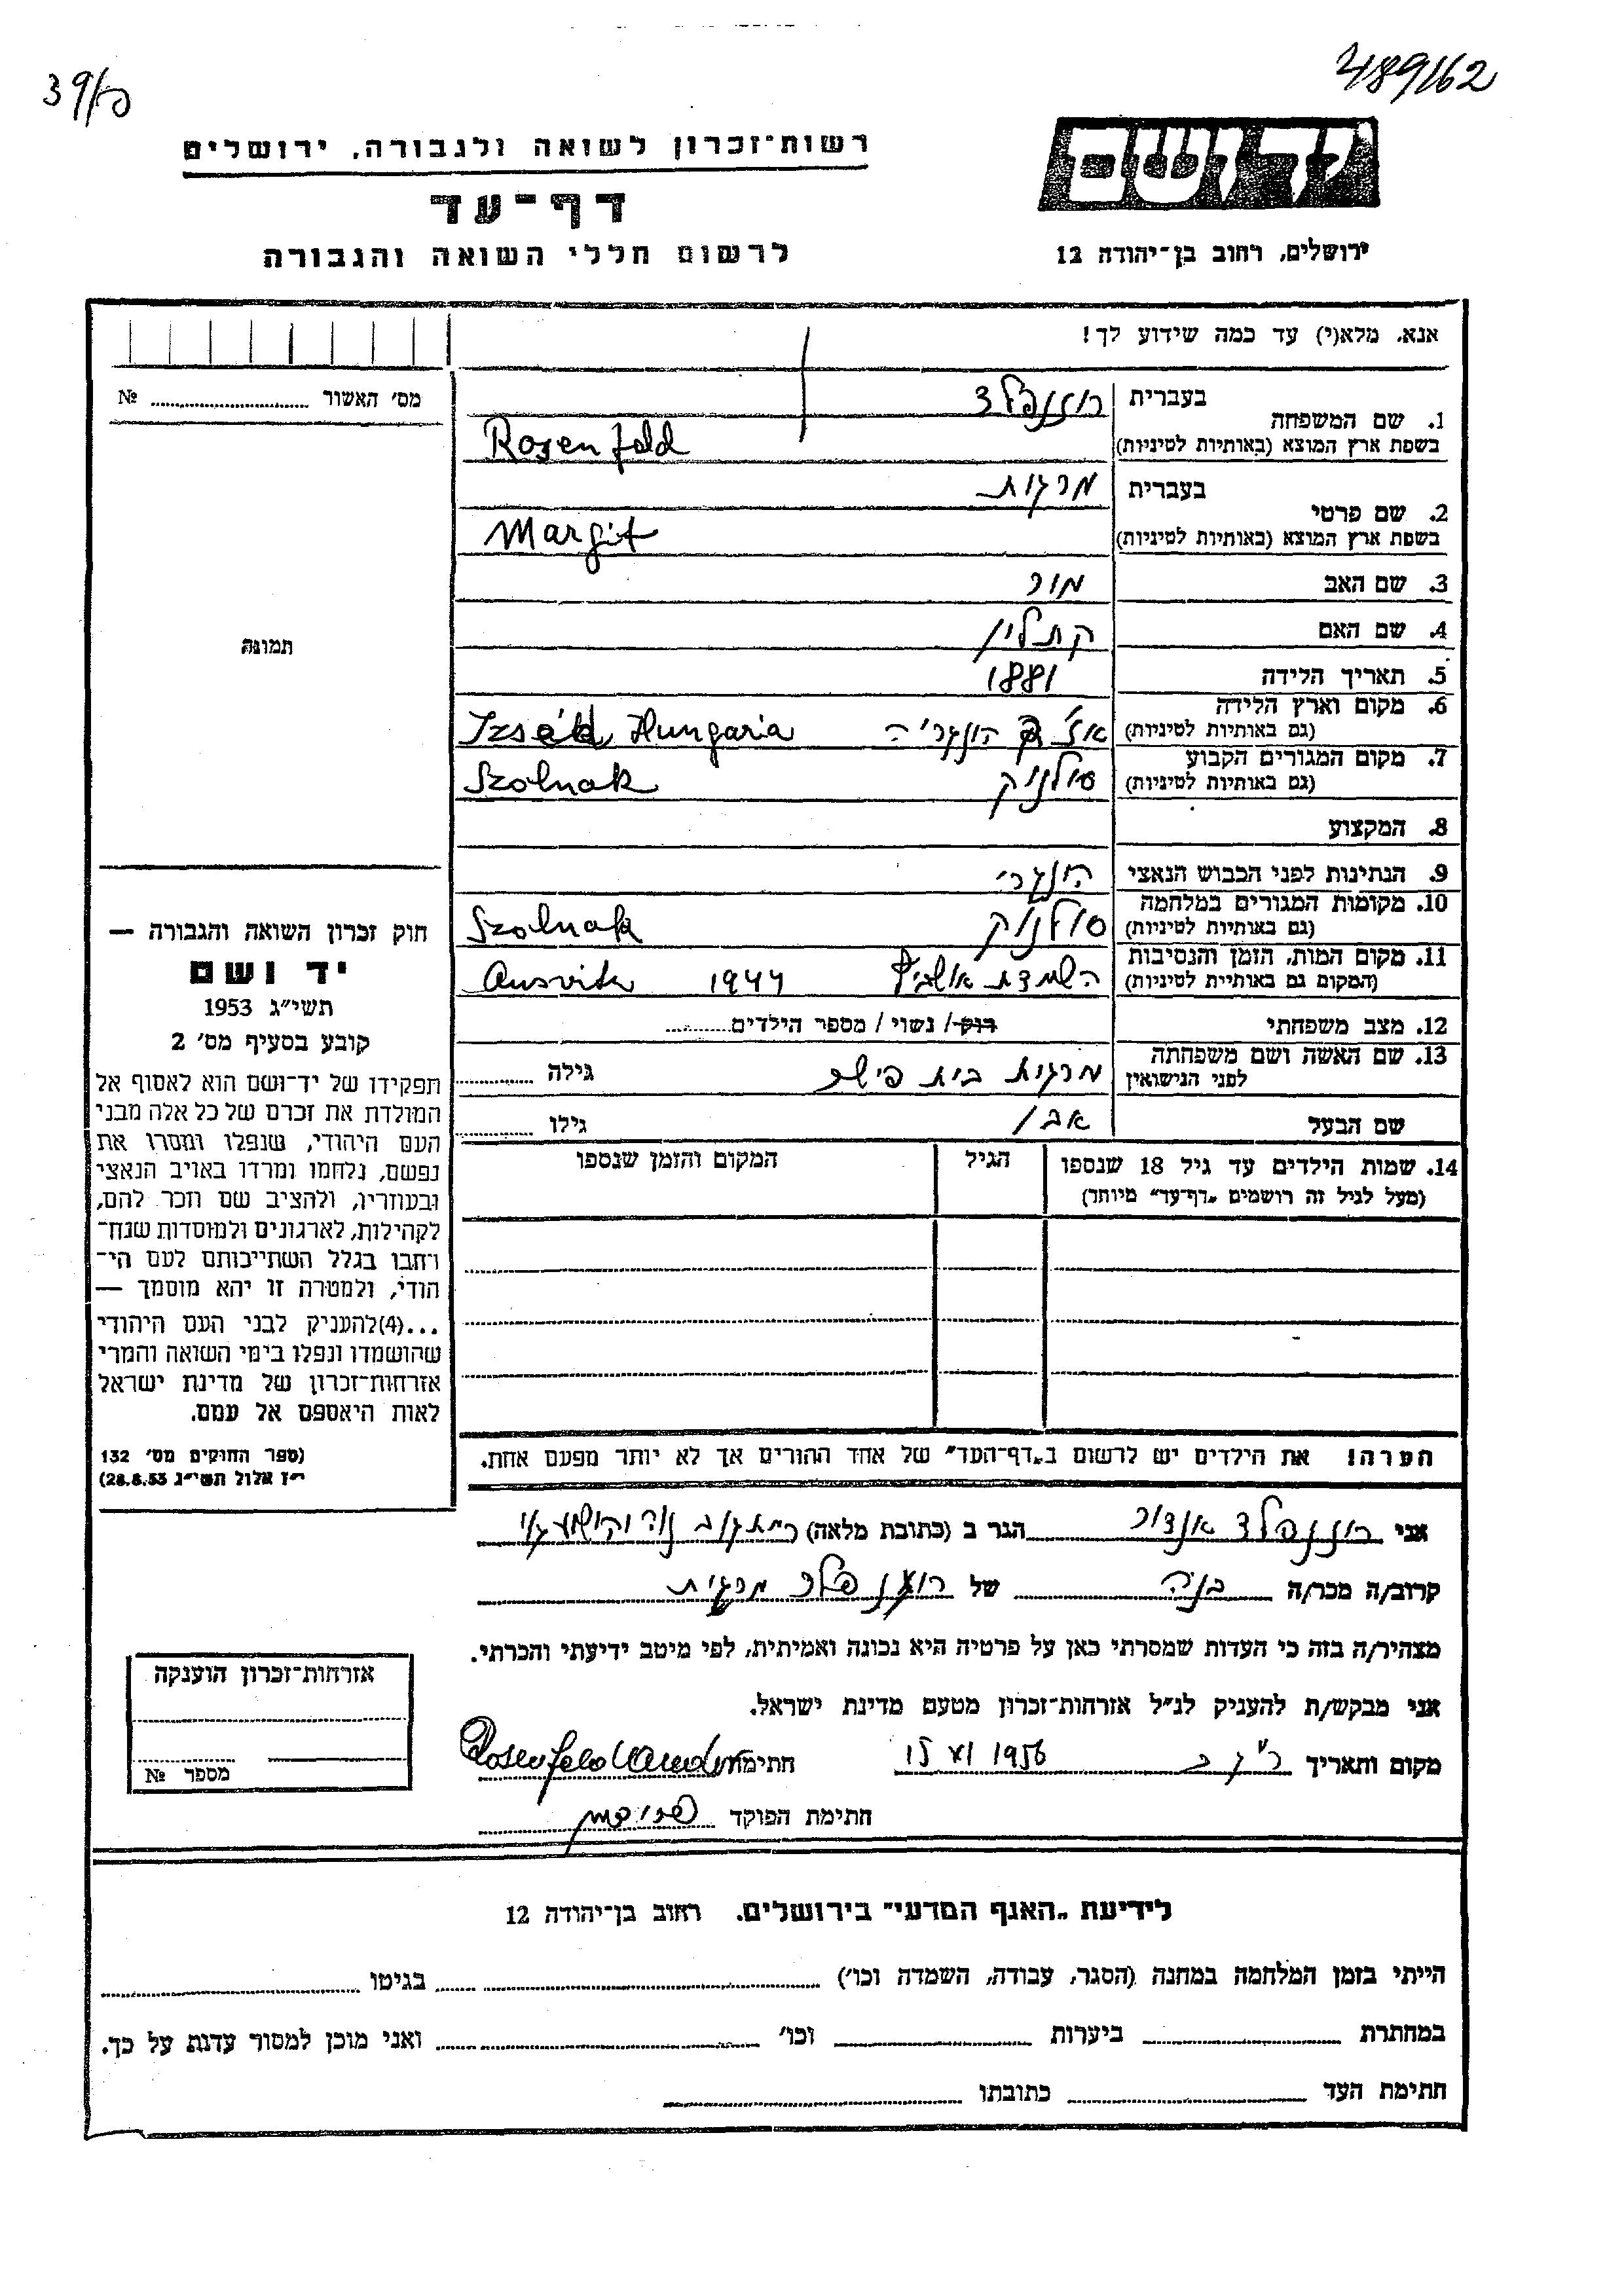 39/פ
489/62
יד ושם
רשות־זכרון לשואה ולגבורה, ירושלים
דף־עד
לרשום חללי השואה והגבורה
ירושלים, רחוב בן־יהודה 12
אנא, מלא(י) עד כמה שידוע לך!
מס׳ האשור № 
1. שם המשפחה
בעברית רוזנפלד
בשפת ארץ המוצא (באותיות לטיניות) Rosenfeld
2. שם פרטי
בעברית מרגית
בשפת ארץ המוצא (באותיות לטיניות) Margit
3. שם האב מור
4. שם האם קתלין
תמונה
5. תאריך הלידה 1881
6. מקום וארץ הלידה
(גם באותיות לטיניות) הונגריה Izsák Hungaria
7. מקום המגורים הקבוע
(גם באותיות לטיניות) סולנוק Szolnok
8. המקצוע
9. הנתינות לפני הכבוש הנאצי הונגרי
10. מקומות המגורים במלחמה
(גם באותיות לטיניות) סולנוק Szolnok
11. מקום המות, הזמן והנסיבות
(המקום גם באותיית לטיניות) השמדת אושביץ 1944 Ausvitz
12. מצב משפחתי רוק/ נשוי / מספר הילדים
13. שם האשה ושם משפחתה
לפני הנישואין מרגית בית פישר גילה
שם הבעל גילו
14. שמות הילדים עד גיל 18 שנספו
(מעל לגיל זה רושמים „דף־עד” מיוחד)
הגיל
המקום והזמן שנספו
חוק זכרון השואה והגבורה —
יד ושם
תשי״ג 1953
קובע בסעיף מס׳ 2
תפקידו של יד־ושם הוא לאסוף אל
המולדת את זכרם של כל אלה מבני
העם היהודי, שנפלו ומסרו את
נפשם, נלחמו ומרדו באויב הנאצי
ובעוזריו, ולהציב שם וזכר להם,
לקהילות, לארגונים ולמוסדות שנח־
רבו בגלל השתייכותם לעם הי־
הודי, ולמטרה זו יהא מוסמך —
...(4)להעניק לבני העם היהודי
שהושמדו ונפלו בימי השואה והמרי
אזרחות־זכרון של מדינת ישראל
לאות היאספם אל עמם.
(ספר החוקים מס׳ 132
י״ז אלול תשי״ג 28.8.53)
הערה! את הילדים יש לרשום ב„דף־העד” של אחד ההורים אך לא יותר מפעם אחת.
אני רוזנפלד אנדור הגר ב (כתובת מלאה)
קרוב/ה מכר/ה בנה של רוזנפלד מרגית
מצהיר/ה בזה כי העדות שמסרתי כאן על פרטיה היא נכונה ואמיתית, לפי מיטב ידיעתי והכרתי.
אני מבקש/ת להעניק לנ״ל אזרחות־זכרון מטעם מדינת ישראל.
מקום ותאריך ר״ג 15 XI 1956 חתימה Rosenfeld Andor
חתימת הפוקד
אזרחות־זכרון הוענקה
מספר №
לידיעת „האגף המדעי” בירושלים, רחוב בן־יהודה 12
הייתי בזמן המלחמה במחנה (הסגר, עבודה, השמדה וכו׳) בגיטו
במחתרת ביערות וכו׳ ואני מוכן למסור עדות על כך.
חתימת העד כתובתו